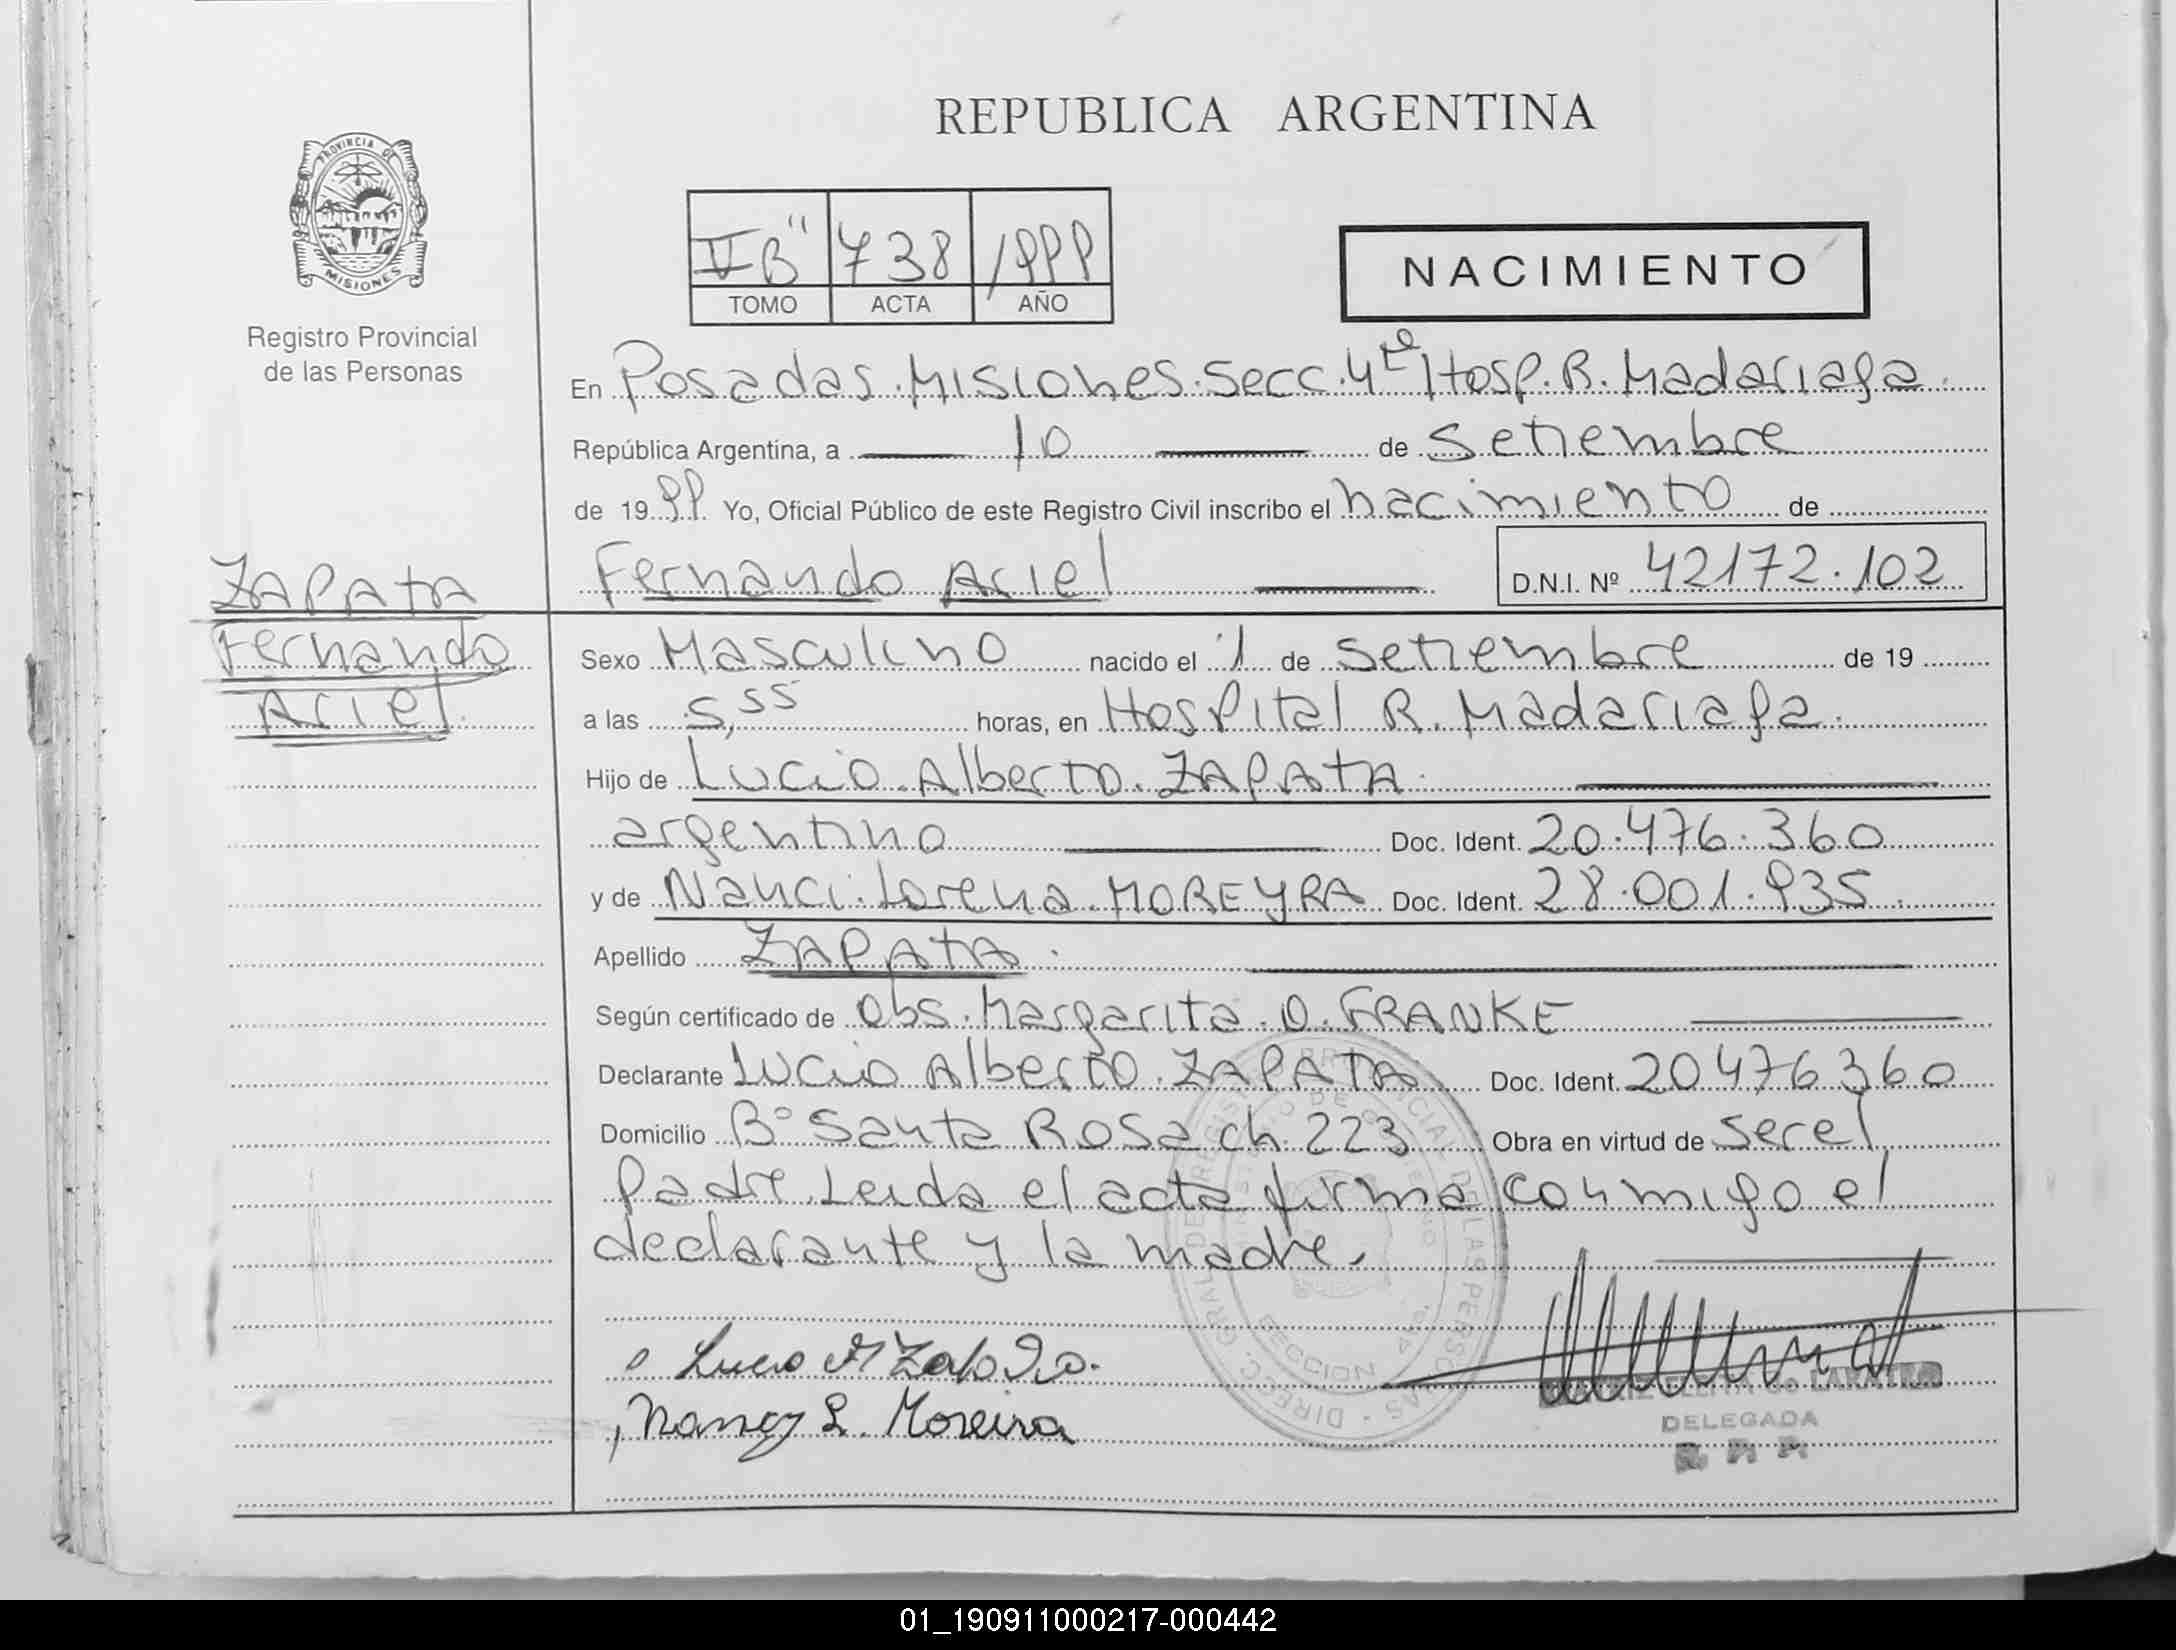 REPUBLICA ARGENTINA
PROVINCIA DE
MISIONES
Registro Provincial
de las Personas
V B" 738 1999
TOMO ACTA AÑO
NACIMIENTO
En Posadas. Misiones. Secc. 4te Hosp. R. Madariaga.
República Argentina, a 10 de Setiembre
de 1999 Yo, Oficial Público de este Registro Civil inscribo el nacimiento de
Fernando Ariel D.N.I. Nº 42172.102
ZAPATA
Fernando
Ariel.
Sexo Masculino nacido el 1 de Setiembre de 19
a las 5,55 horas, en Hospital R. Madariaga.
Hijo de Lucio Alberto. ZAPATA.
argentino Doc. Ident. 20.476.360
y de Nanci Lorena MOREYRA Doc. Ident. 28.001.935
Apellido ZAPATA.
Según certificado de Obs. Margarita O. FRANKE
Declarante Lucio Alberto ZAPATA Doc. Ident. 20476360
Domicilio Bº Santa Rosa ch. 223 Obra en virtud de Ser el
Padre. Leida el acta firma conmigo el
declarante y la madre.
Lucio A Zapata.
Nancy L. Moreira
DELEGADA
R. P. P.
01_190911000217-000442